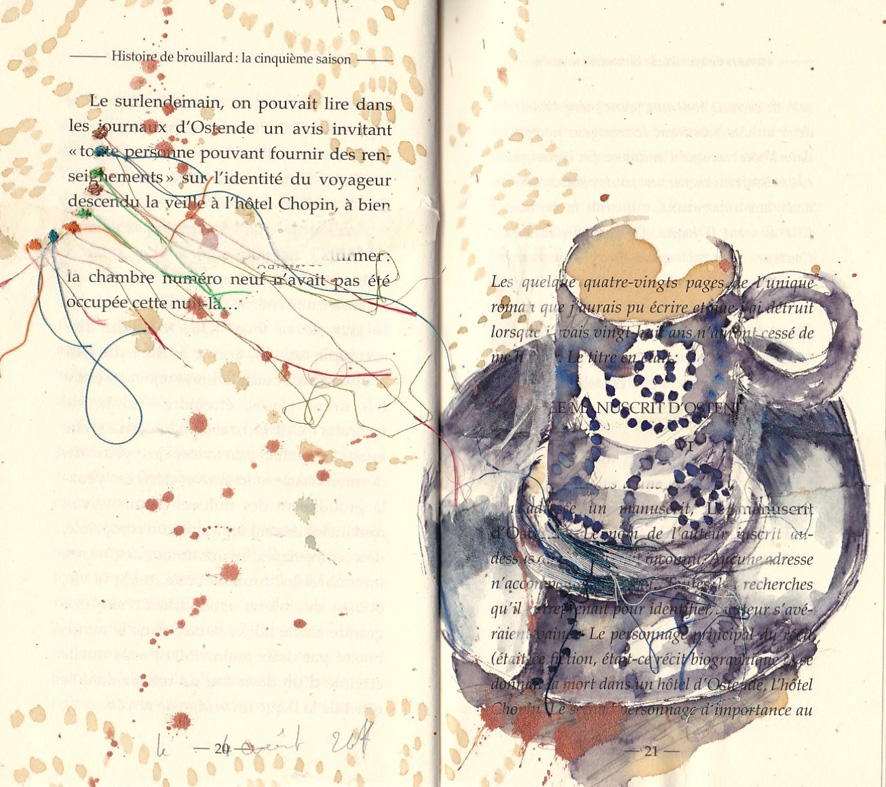 Histoire de brouillard : la cinquième saison
Le surlendemain, on pouvait lire dans
les journaux d'Ostende un avis invitant
« toute personne pouvant fournir des ren-
seignements » sur l'identité du voyageur
descendu la veille à l'hôtel Chopin, à bien
rmer :
la chambre numéro neuf n'avait pas été
occupée cette nuit-là…
le août 20
— 20 —
Les quelque quatre-vingts pages de l'unique
roman que j'aurais pu écrire et que j'ai détruit
lorsque j'avais vingt-huit ans n'auront cessé de
Le titre en était :
LE MANUSCRIT D'OSTENDE
un manuscrit. Le manuscrit
d'Ostende. Le nom de l'auteur inscrit au-
dessus inconnu. Aucune adresse
n'accompagnait Toutes les recherches
qu'il entreprenait pour identifier l'auteur s'avé-
raient vaines. Le personnage principal du récit
(était-ce fiction, était-ce récit biographique ?) se
donnait la mort dans un hôtel d'Ostende, l'hôtel
Chopin. Le second personnage d'importance au
— 21 —